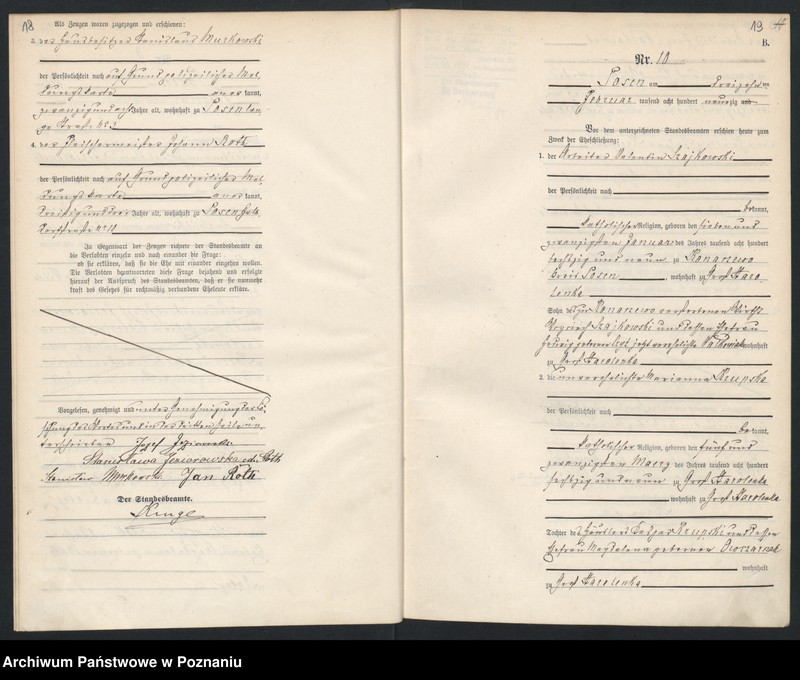 18
Als Zeugen waren zugezogen und erschienen:
3. der Hausbesitzer Stanislaus Murkowski
der Persönlichkeit nach auf Grund polizeilicher Mel-
dungskarte anerkannt,
zwanzigundacht Jahre alt, wohnhaft zu Posen
Straße No 3
4. der Fleischermeister Johann Roth
der Persönlichkeit nach auf Grund polizeilicher Mel-
dungskarte anerkannt,
dreißigunddrei Jahre alt, wohnhaft zu Posen
No 10
In Gegenwart der Zeugen richtete der Standesbeamte an
die Verlobten einzeln und nach einander die Frage:
ob sie erklären, daß sie die Ehe mit einander eingehen wollen.
Die Verlobten beantworteten diese Frage bejahend und erfolgte
hierauf der Ausspruch des Standesbeamten, daß er sie nunmehr
kraft des Gesetzes für rechtmäßig verbundene Eheleute erkläre.
Vorgelesen, genehmigt und unter Genehmigung der Lö-
schung
terschrieben Józef
Stanisława Jeziorowska ed. Roth
Stanislaw Murkowski Jan Roth
Der Standesbeamte.
Kruge
19
B.
Nr. 10
Posen am dreizehnten
Februar tausend acht hundert neunzig und
Vor dem unterzeichneten Standesbeamten erschien heute zum
Zweck der Eheschließung:
1. der Arbeiter Valentin Szajkowski
der Persönlichkeit nach
bekannt,
katholischer Religion, geboren den sieben und
zwanzigsten Januar des Jahres tausend acht hundert
sechzig und neun zu Konarzewo
Kreis Posen, wohnhaft zu Groß Staro-
lenka
Sohn des zu Konarzewo verstorbenen Wirths
Woyciech Szajkowski und dessen Ehefrau
Hedwig geborenen jetzt verehelichte wohnhaft
zu Groß Starolenka
2. die unverehelichte Marianna Krupska
der Persönlichkeit nach
bekannt,
katholischer Religion, geboren den fünf und
zwanzigsten Maerz des Jahres tausend acht hundert
sechzig und neun zu Groß Starolenka
wohnhaft zu Groß Starolenka
Tochter des Häuslers Kaspar Krupski und dessen
Ehefrau Magdalena geborenen Owczarzak
wohnhaft
zu Groß Starolenka
Archiwum Państwowe w Poznaniu